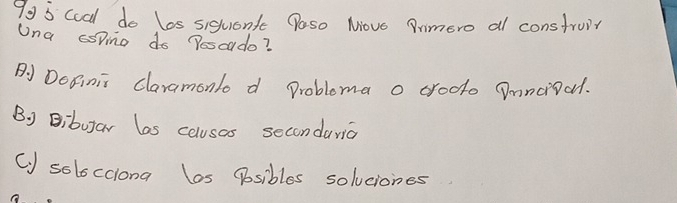 cual de los siguiente Paso Move Primero al construir
Una espino de Pescado?
A.) Definii claramente el Problema o efecto Principal.
B.) Dibujar las causas secundaria
C.) selecciona las Posibles soluciones